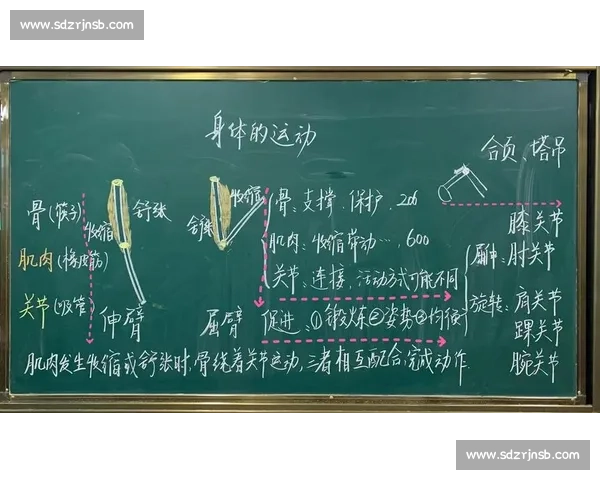 www.sdzrjnsb.com
身体的运动
合页、塔吊
骨(筷子)
肌肉(橡皮筋)
关节(吸管)
收缩
舒张
伸臂
收缩
舒张
屈臂
骨:支撑、保护、206
肌肉:收缩带动…,600
关节:连接、活动方式可能不同
促进:①锻炼②姿势③均衡
屈伸:
膝关节
肘关节
旋转:
肩关节
踝关节
腕关节
肌肉发生收缩或舒张时,骨绕着关节运动,三者相互配合完成动作.
www.sdzrjnsb.com